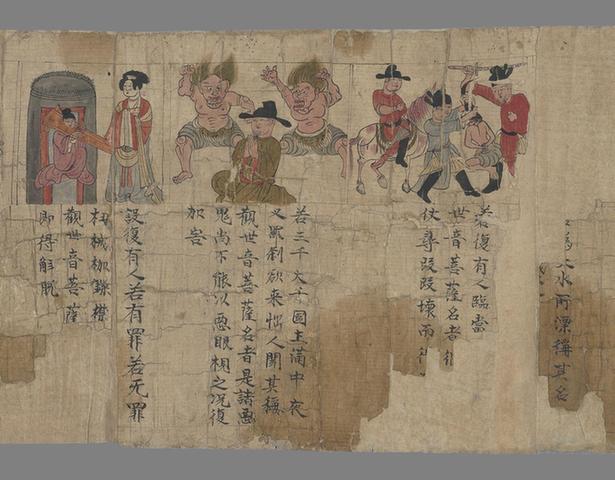 為大水所漂稱其名
若復有人臨當
世音菩薩名者
仗尋段段壞而
若三千大千國土滿中夜
叉羅剎欲来惱人聞其稱
觀世音菩薩名者是諸惡
鬼尚不能以惡眼視之況復
加害
設復有人若有罪若无罪
杻械枷鏁
觀世音菩薩
即得解脫